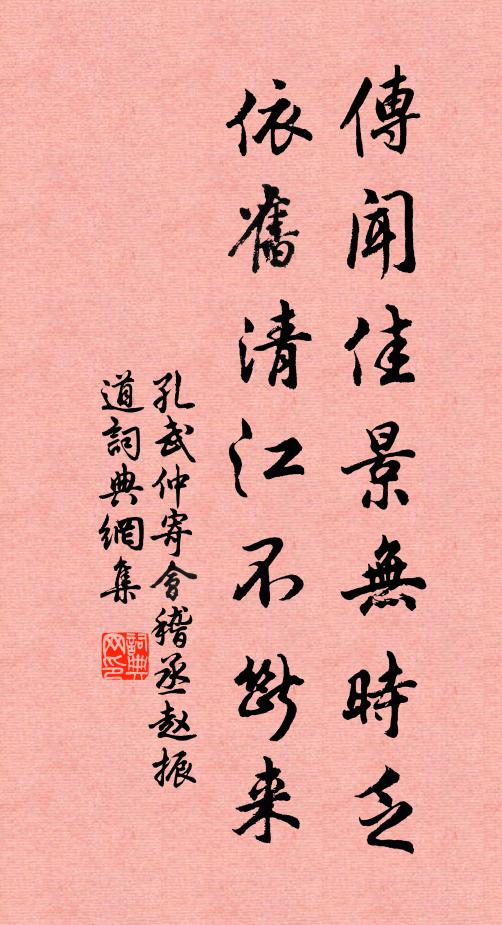 傳聞佳景無時乏
依舊清江不斷来
孔武仲寄會稽丞赵振
道詞典網集
詞典
网印